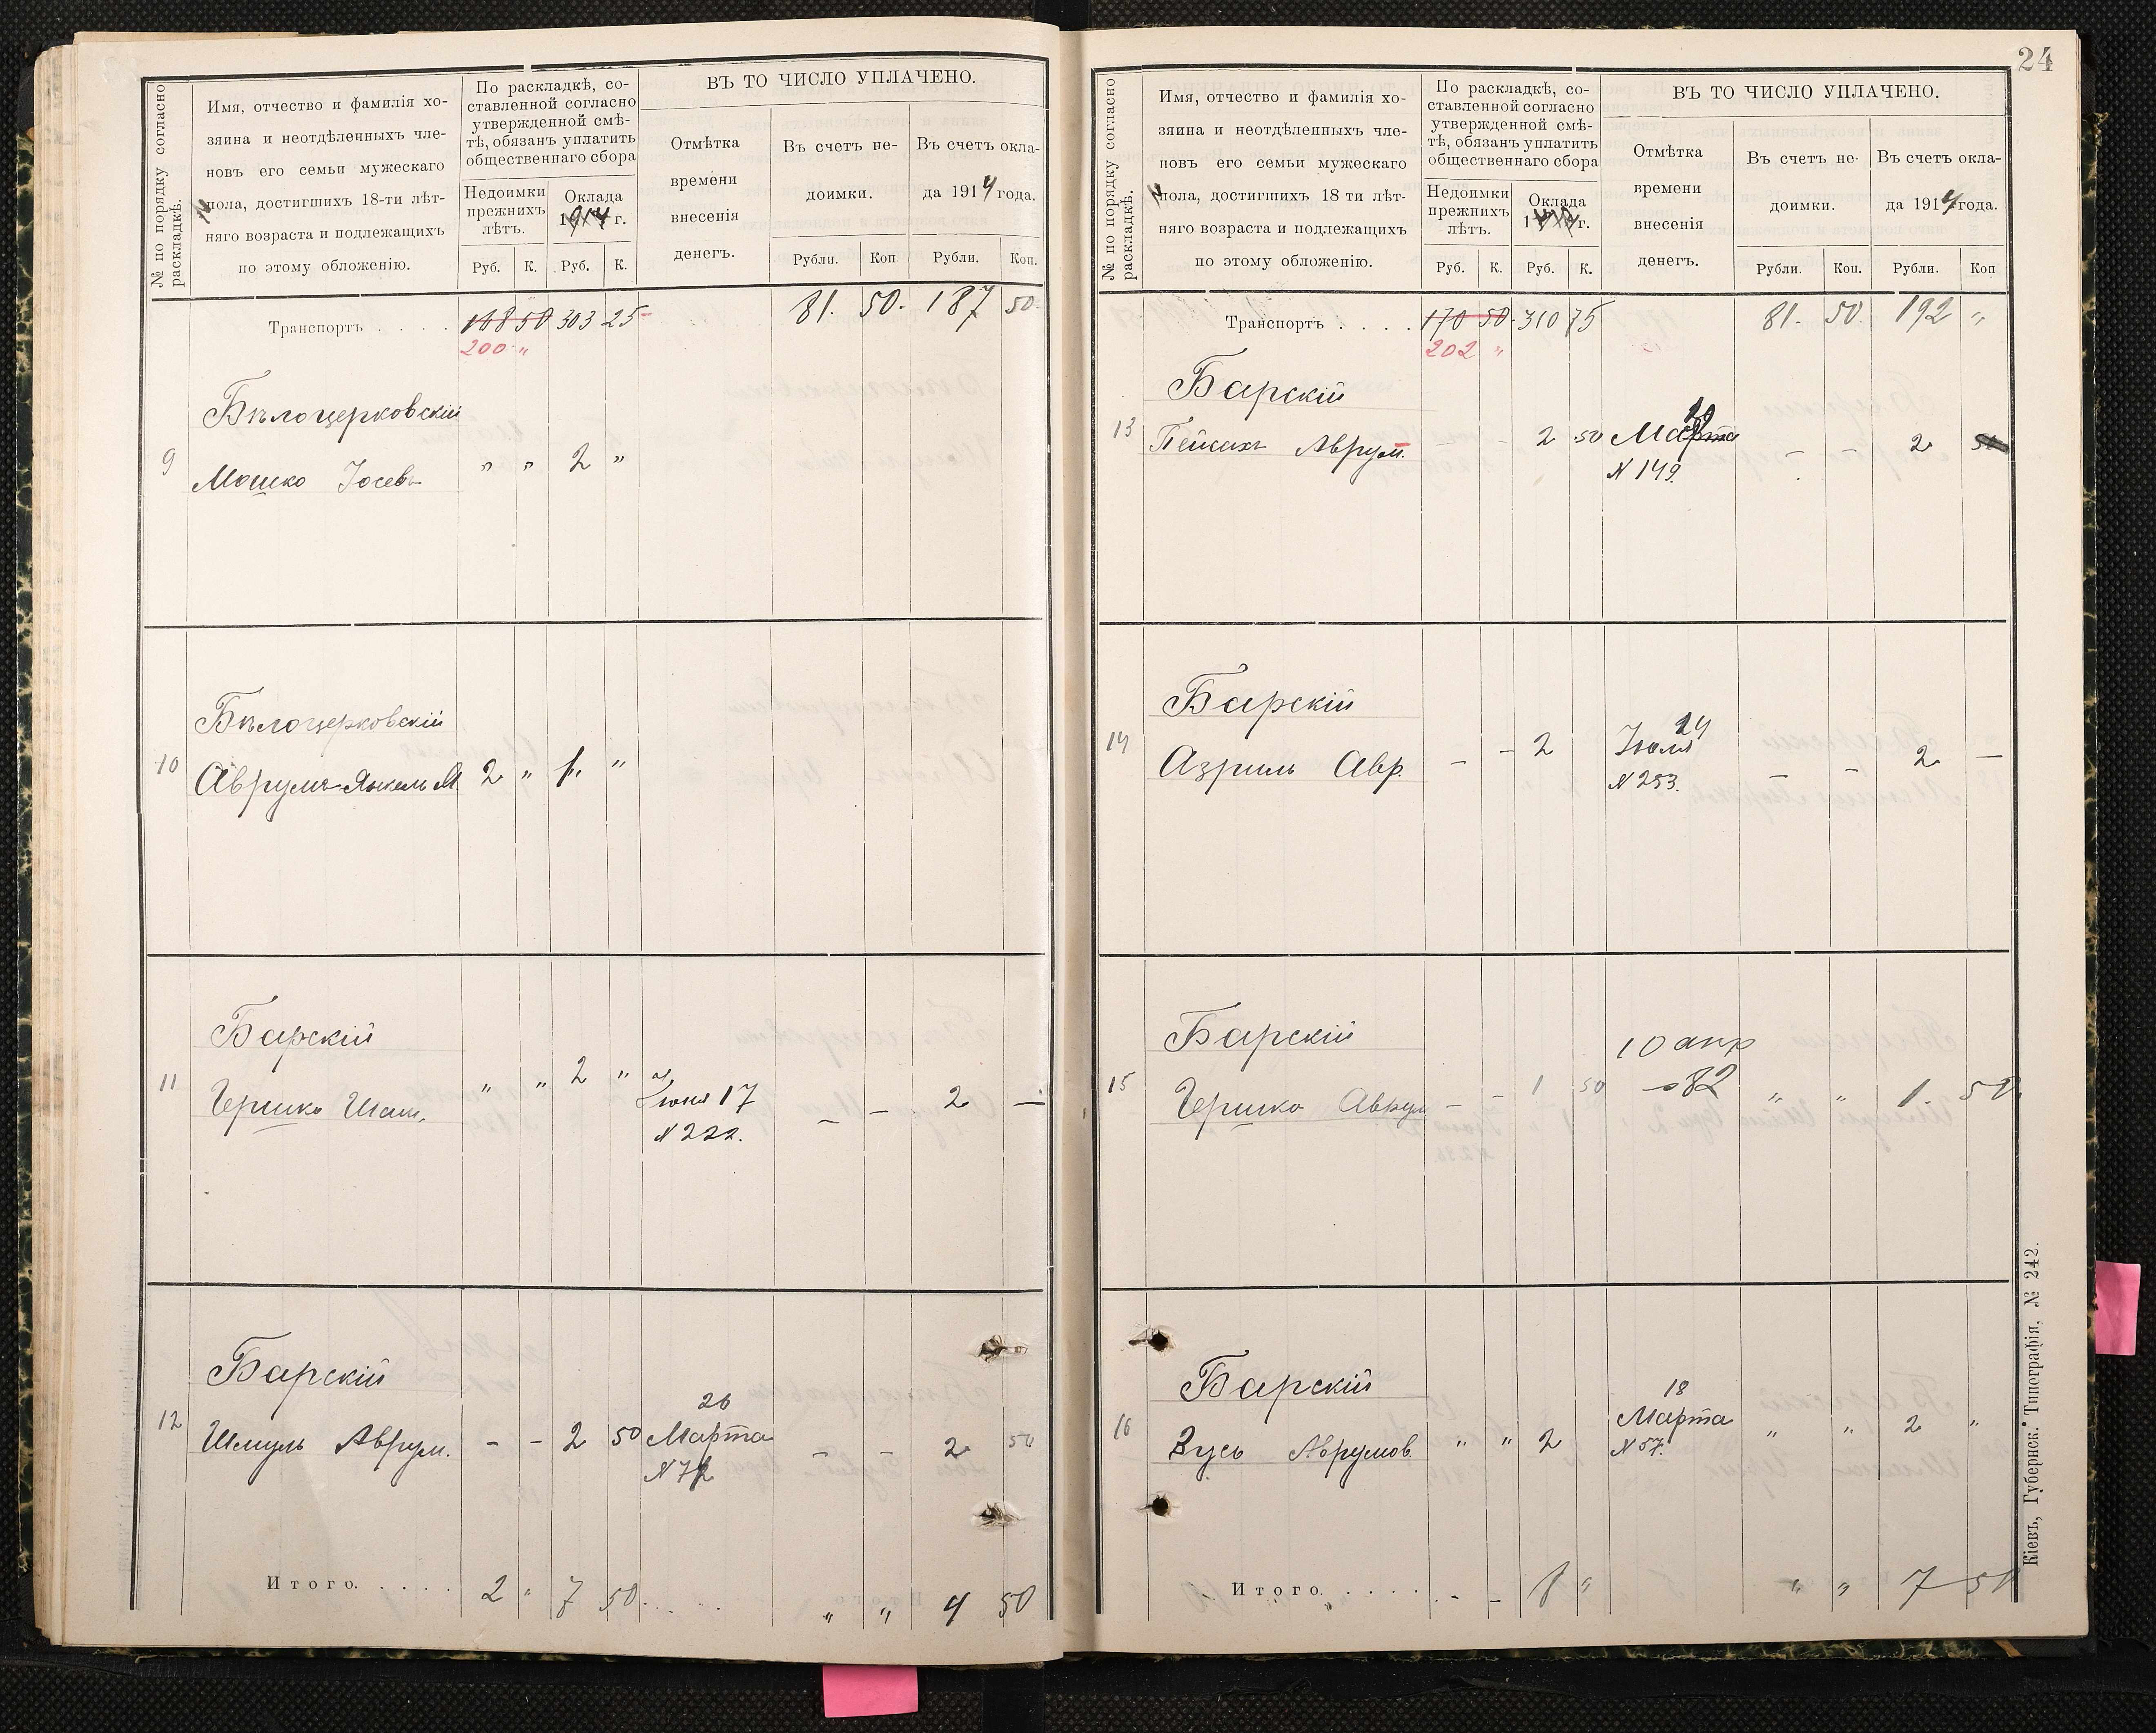 № по порядку согласно раскладкѣ.
Имя, отчество и фамилія хо-
зяина и неотдѣленныхъ чле-
новъ его семьи мужескаго
пола, достигшихъ 18-ти лѣт-
няго возраста и подлежащихъ
по этому обложенію.
По раскладкѣ, со-
ставленной согласно
утвержденной смѣ-
тѣ, обязанъ уплатить
общественнаго сбора
Недоимки
прежнихъ
лѣтъ.
Оклада
1914 г.
Руб. К. Руб. К.
ВЪ ТО ЧИСЛО УПЛАЧЕНО.
Отмѣтка
времени
внесенія
денегъ.
Въ счетъ не-
доимки.
Въ счетъ окла-
да 1914 года.
Рубли. Коп. Рубли. Коп.
Транспортъ . . . . 168 50 303 25 81. 50. 187 50.
200 "
Бѣлоцерковскій
9 Мошко Іосевъ " " 2 "
Бѣлоцерковскій
10 Аврумъ-Янкель М. 2 " 1. "
Барскій
11 Гершко Шаи. " " 2 " Іюня 17 — — 2 —
N 222.
Барскій
26
12 Шмуль Аврум. - - 2 50 Марта — — 2 50
N 72
Итого. . . . . 2 " 7 50 " " 4 50
24
№ по порядку согласно раскладкѣ.
Имя, отчество и фамилія хо-
зяина и неотдѣленныхъ чле-
повъ его семьи мужескаго
пола, достигшихъ 18 ти лѣт-
няго возраста и подлежащихъ
по этому обложенію.
По раскладкѣ, со-
ставленной согласно
утвержденной смѣ-
тѣ, обязанъ уплатить
общественнаго сбора
Недоимки
прежнихъ
лѣтъ.
Оклада
г.
Руб. К. Руб. К.
ВЪ ТО ЧИСЛО УПЛАЧЕНО.
Отмѣтка
времени
внесенія
денегъ.
Въ счетъ не-
доимки.
Въ счетъ окла-
да 1914 года.
Рубли. Коп. Рубли. Коп
Транспортъ . . . . 170 50. 310 75 81. 50. 192 "
202 "
Барскій
13 Пейсахъ Аврум. — - 2 50 Марта — — 2
N 149.
Барскій
24
14 Азриль Авр. — - 2 Іюля — — 2 —
N 253.
Барскій
10 апр
15 Гершко Аврум — - 1 50 82 " " 1. 50
Барскій
18
16 Зусь Аврумов. " " 2 Марта " " 2 "
N 57.
Итого. . . . . - - 8 " " " 7 50
Кіевъ, Губернск. Типографія, № 242.